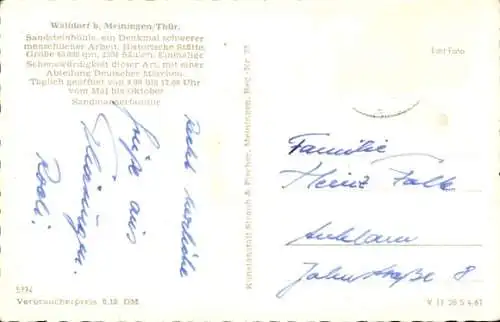 Walldorf b. Meiningen/Thür.
Sandsteinhöhle, ein Denkmal schwerer
menschlicher Arbeit. Historische Stätte.
Größe 65 000 qm, 2500 Säulen. Einmalige
Sehenswürdigkeit dieser Art, mit einer
Abteilung Deutscher Märchen.
Täglich geöffnet von 8.00 bis 17.00 Uhr
vom Mai bis Oktober
Sandmännerfamilie
Recht herzliche
Grüße aus
Meiningen.
Kunstanstalt Straub & Fischer, Meiningen, Reg.-Nr. 28
Echt Foto
Familie
Heinz Falk
Anklam
Jahnstraße 8
Verbraucherpreis 0,18 DM
V 11 28 5 4.61